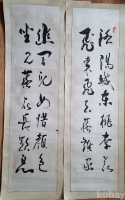 洛陽城東桃李花
飛來飛去落誰家
幽閨兒女惜顏色
坐見落花長歎息
kobay